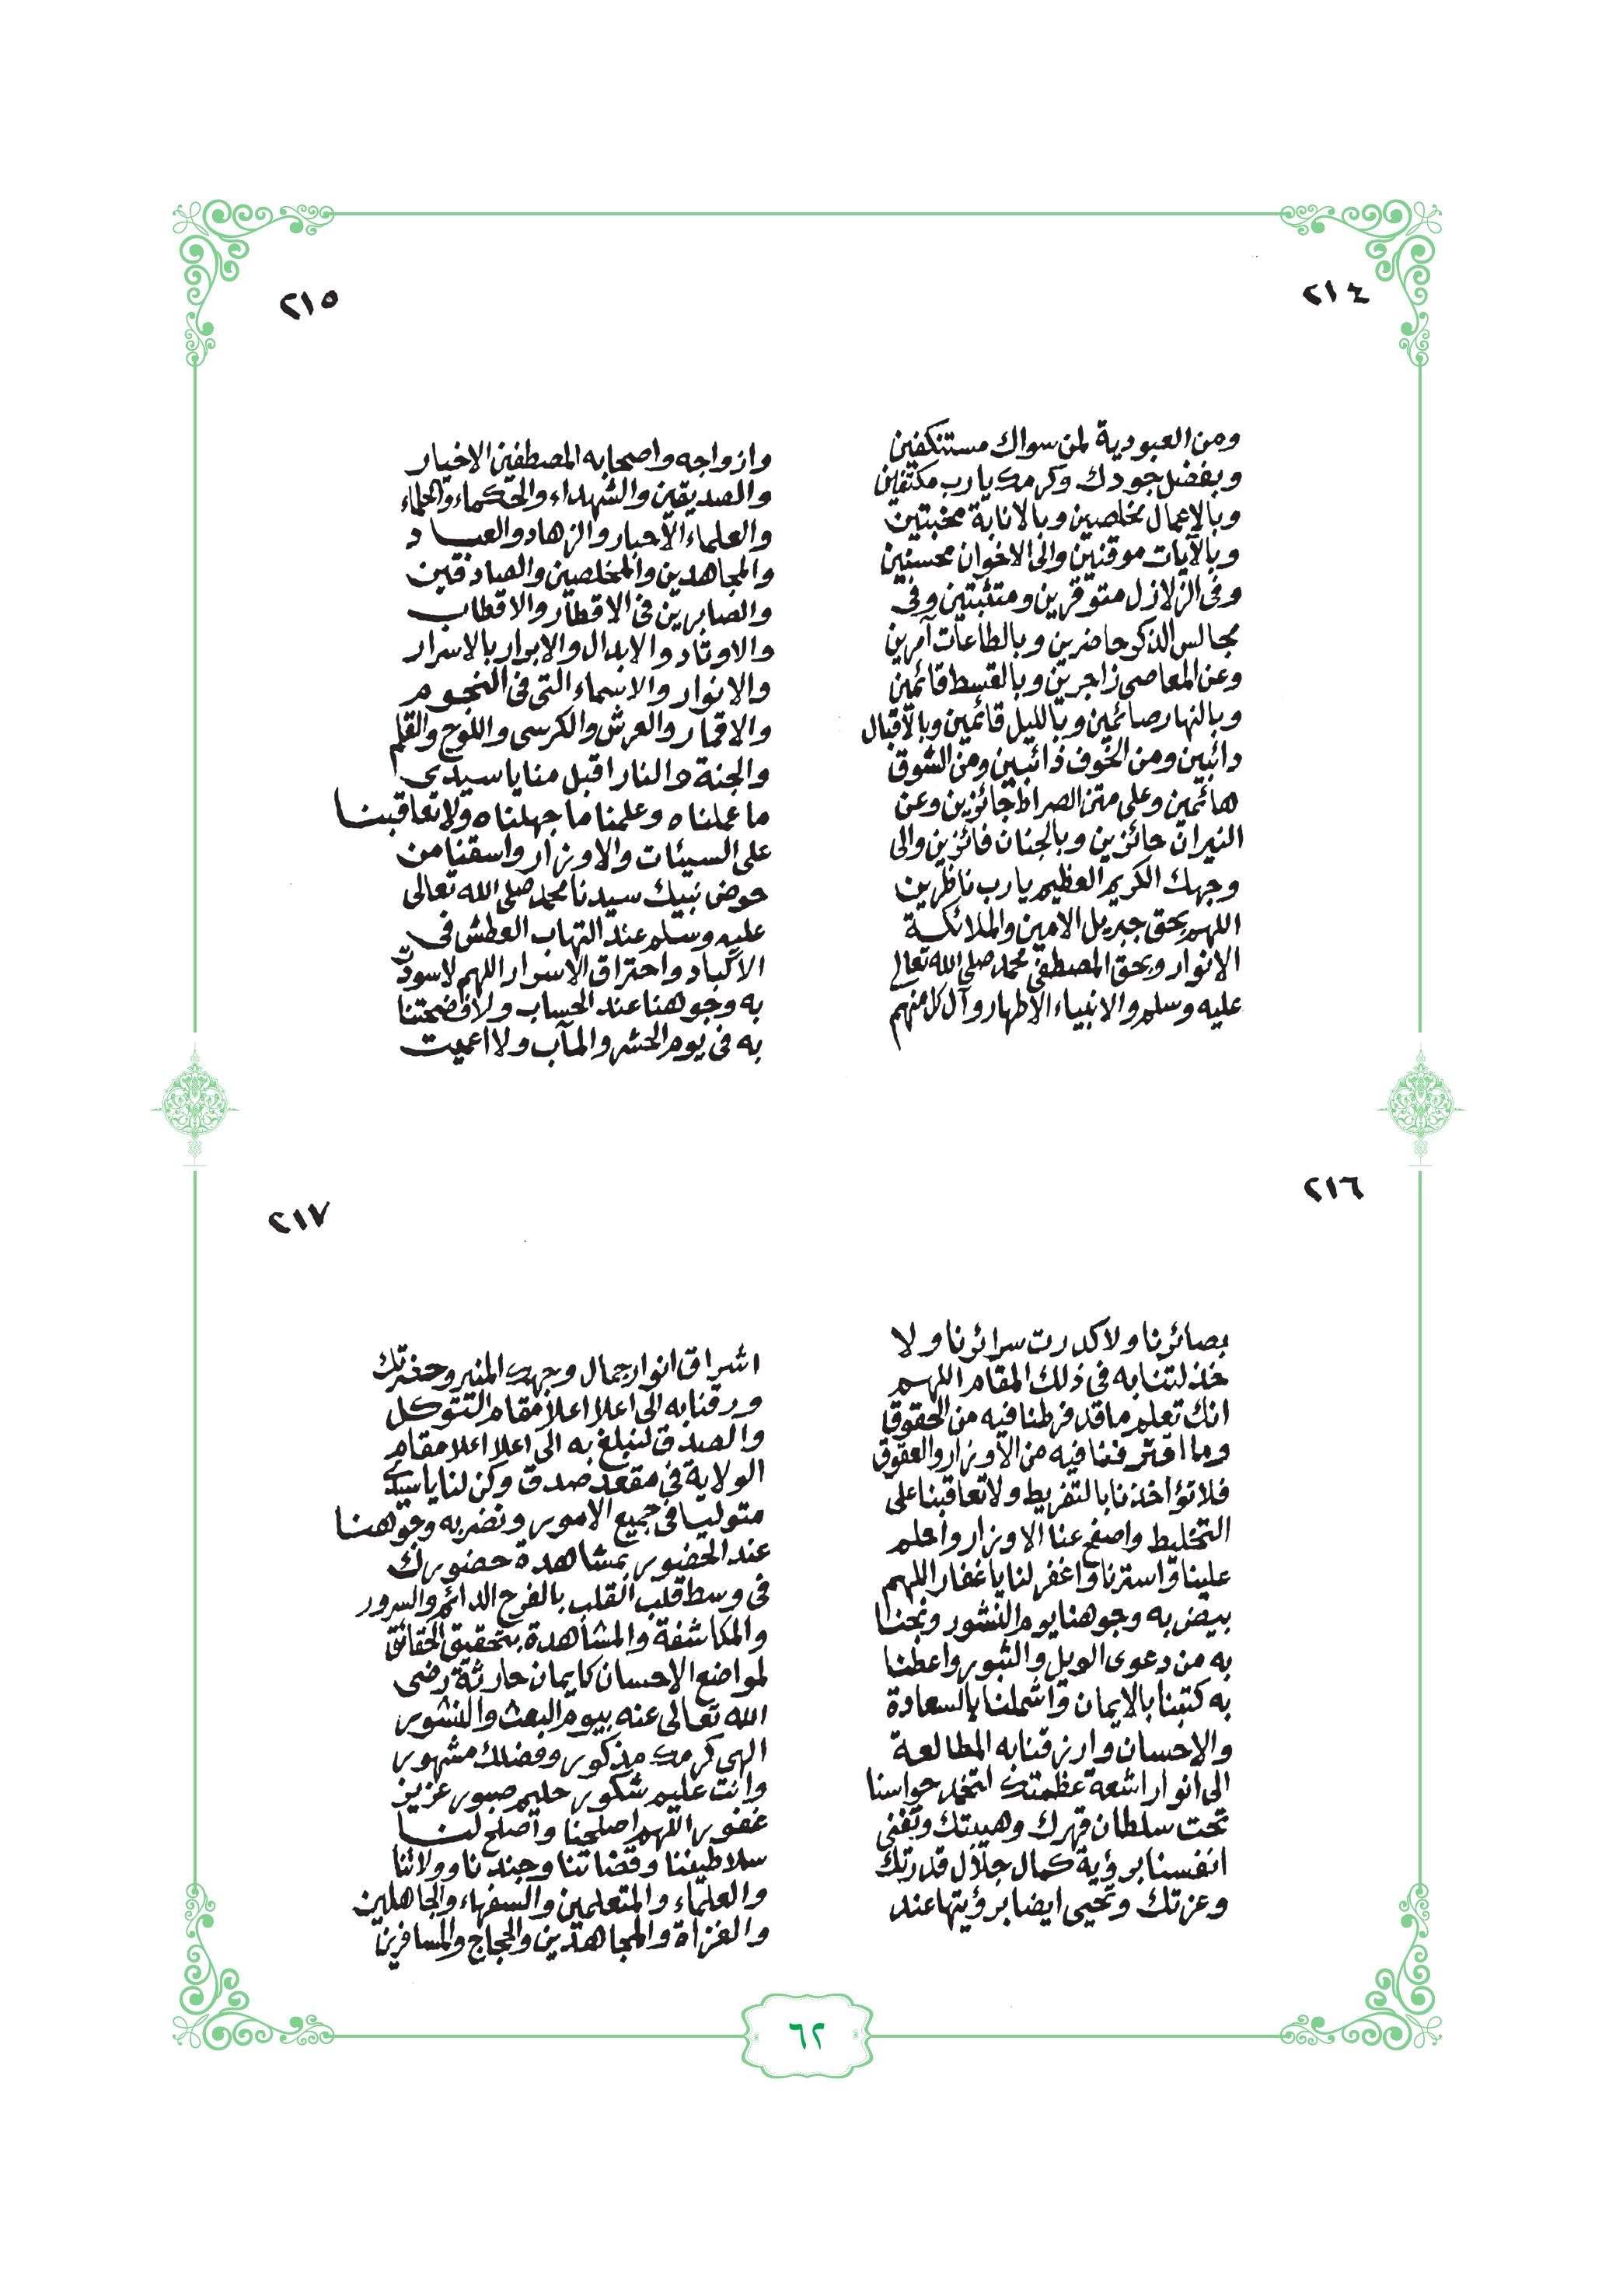 ٢١٤
ومن العبودية لمن سواك مستنكفين
وبفضل جودك وكرمك يارب مكتفين
وبالاعمال مخلصين وبالانابة مخبتين
وبالآيات موقنين والى الاخوان محسنين
وفى الزلازل متوقرين ومتثبتين وفى
مجالس الذكر حاضرين وبالطاعات آمرين
وعن المعاصى زاجرين وبالقسط قائمين
وبالنهار صائمين وبالليل قائمين وبالاقبال
دائبين ومن الخوف ذائبين ومن الشوق
هائمين وعلى متن الصراط جائزين وعن
النيران حائزين وبالجنان فائزين والى
وجهك الكريم العظيم يارب ناظرين
اللهم بحق جبريل الامين والملائكة
الانوار وبحق المصطفى محمد صلى الله تعالى
عليه وسلم والانبياء الاطهار وآل كل منهم
٢١٥
وازواجه واصحابه المصطفين الاخيار
والصديقين والشهداء والحكماء والحلماء
والعلماء الأحبار والزهاد والعباد
والمجاهدين والمخلصين والصادقين
والصابرين فى الاقطار والاقطاب
والاوتاد والابدال والابرار بالاسرار
والانوار والاسماء التى فى النجوم
والاقمار والعرش والكرسى واللوح والقلم
والجنة والنار اقبل منا يا سيدى
ما عملناه وعلمنا ما جهلناه ولا تعاقبنا
على السيئات والاوزار واسقنا من
حوض نبيك سيدنا محمد صلى الله تعالى
عليه وسلم عند التهاب العطش فى
الاكباد واحتراق الاسرار اللهم لا سودت
به وجوهنا عند الحساب ولا فضحتنا
به فى يوم الحشر والمآب ولا اعميت
٢١٦
بصائرنا ولا كدرت سرائرنا ولا
خذلتنا به فى ذلك المقام اللهم
انك تعلم ما قد فرطنا فيه من الحقوق
وما اقترفنا فيه من الأوزار والعقوق
فلا تؤاخذنا بالتفريط ولا تعاقبنا على
التخليط واصفح عنا الاوزار واحلم
علينا واسترنا واغفر لنا يا غفار اللهم
بيض به وجوهنا يوم النشور ونجنا
به من دعوى الويل والثبور واعطنا
به كتبنا بالايمان واشملنا بالسعادة
والاحسان وارزقنا به المطالعة
الى انوار اشعة عظمتك لتخمد حواسنا
تحت سلطان قهرك وهيبتك وتفنى
انفسنا برؤية كمال جلال قدرتك
وعزتك وتحيى ايضا برؤيتها عند
٢١٧
اشراق انوار جمال وجهك المنير وحضرتك
ورقنا به الى اعلا اعلا مقام التوكل
والصدق لنبلغ به الى اعلا اعلا مقام
الولاية فى مقعد صدق وكن لنا يا سيدى
متوليا فى جميع الامور ونضر به وجوهنا
عند الحضور بمشاهدة حضورك
فى وسط قلب القلب بالفرح الدائم والسرور
والمكاشفة والمشاهدة بتحقيق الحقائق
لمواضع الاحسان كايمان حارثة رضى
الله تعالى عنه بيوم البعث والنشور
الهى كرمك مذكور وفضلك مشهور
وانت عليم شكور حليم صبور عزيز
غفور اللهم اصلحنا واصلح لنا
سلاطيننا وقضاتنا وجندنا وولاتنا
والعلماء والمتعلمين والسفهاء والجاهلين
والغزاة والمجاهدين والحجاج والمسافرين
٦٢